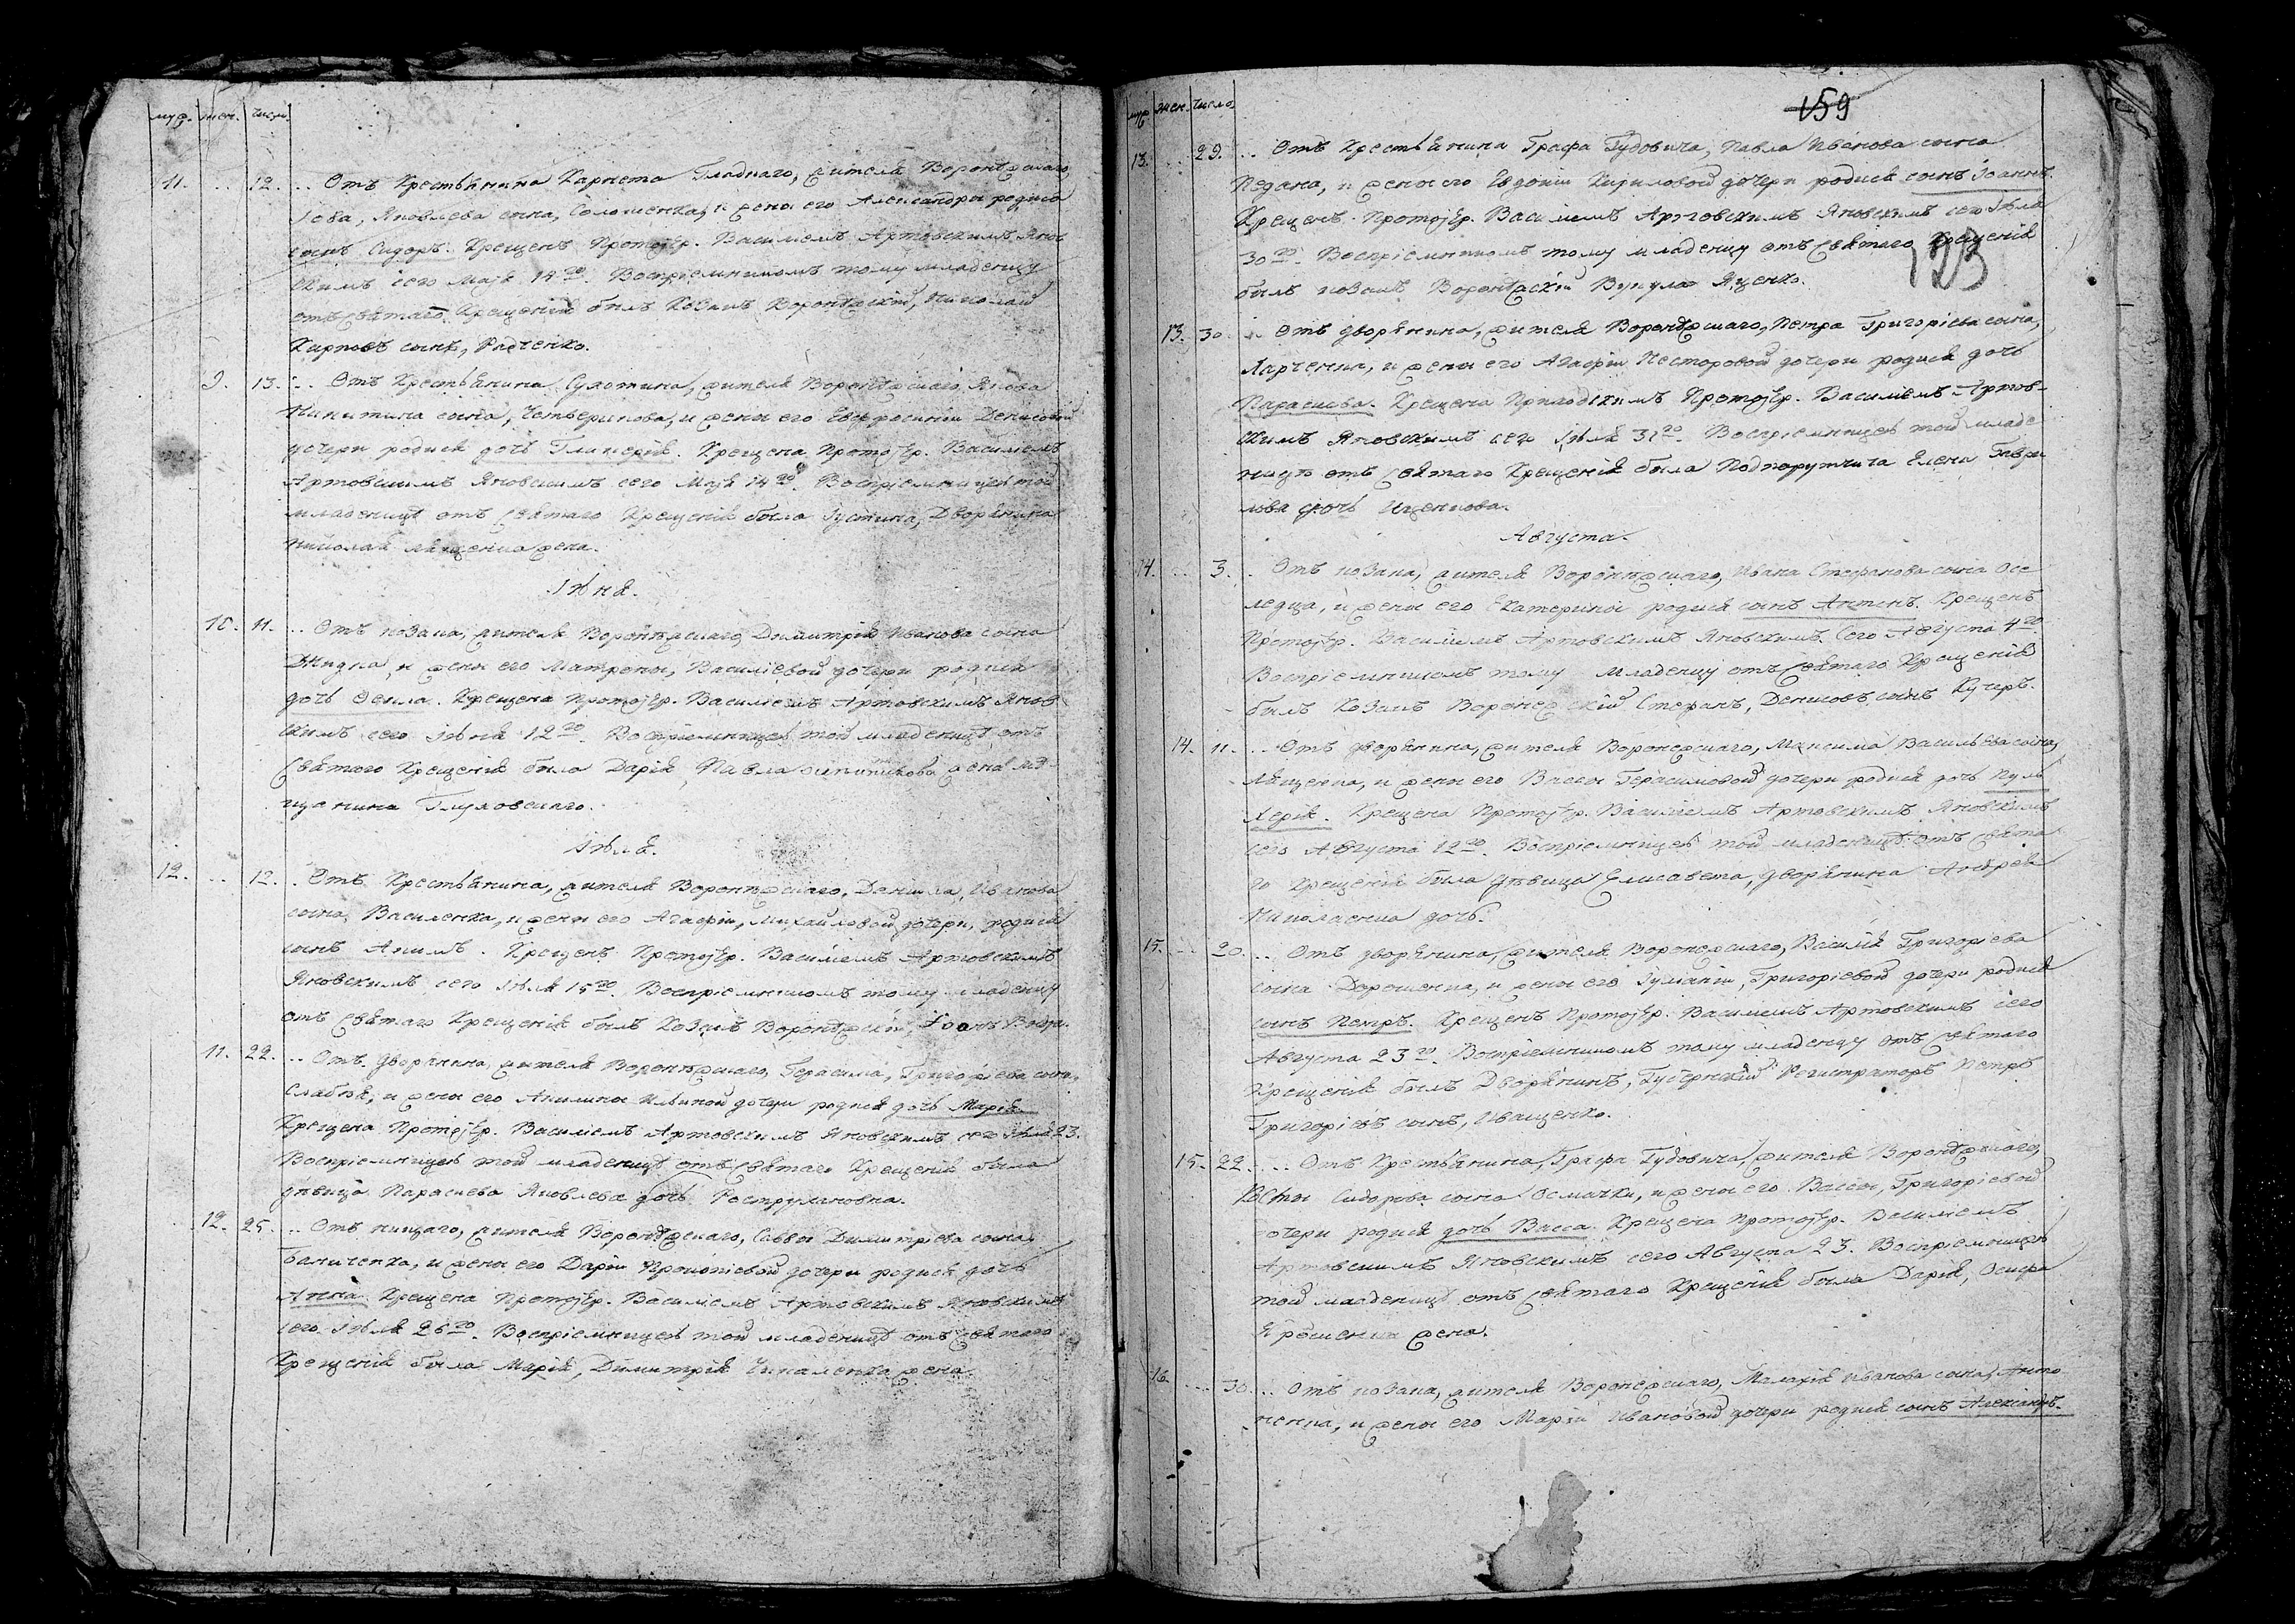 муж. жен. число.
11. .. 12. .. Отъ Крестьянина Карпета Гладкаго, жителя Воронѣжскаго,
Іова, Яковлева сына, Соломенка, и жены его Александры родился
сынъ Сидоръ. Крещенъ Протоіер. Василіемъ Артовскимъ Янов
скимъ сего Маія 14го. Воспріемникомъ тому младенцу
отъ Святаго Крещенія былъ Козакъ Воронѣжскій, Николай
Карповъ сынъ, Радченко.
9. 13. .. Отъ Крестьянина Сухотина, жителя Воронѣжскаго Якова
Никитина сына, Четверикова, и жены его Евфросиніи Денисовой
дочери родися дочь Гликерія. Крещена Протоіер. Василіемъ
Артовскимъ Яновскимъ сего Маія 14го. Воспріемницею той
младеницѣ отъ Святаго Крещенія была Іустина, Дворянина
Николая Лященка жена.
Іюня.
10. 11. .. Отъ козака, жителя Воронѣжскаго, Димитрія Иванова сына
Дмидка, и жены его Матрены, Василіевой дочери родися
дочь Фекла. Крещена Протоіер. Василіемъ Артовскимъ Янов
скимъ сего Іюня 12го. Воспріемницею той младеницѣ отъ
Святаго Крещенія была Дарія, Павла жена мѣ
щанина Глуховскаго.
Іюля.
12. .. 12. . Отъ Крестьянина, жителя Воронѣжскаго, Данила, Иванова
сына, Василенка, и жены его Агафіи, Михайловой дочери, родися
сынъ Акимъ. Крещенъ Протоіер. Василіемъ Артовскимъ
Яновскимъ сего Іюля 15го. Воспріемникомъ тому младенцу
отъ Святаго Крещенія былъ Козакъ Воронѣжскій, Іоанъ
11. 22. .. Отъ дворянина, жителя Воронѣжскаго, Герасима, Григоріева сына,
Слабѣя, и жены его Акилины Ильиной дочери родися дочь Марія.
Крещена Протоіер. Василіемъ Артовскимъ Яновскимъ сего Іюля 23.
Воспріемницею той младеницѣ отъ Святаго Крещенія была
дѣвица Параскева Яковлева дочь
12. 25. .. Отъ нищаго, жителя Воронѣжскаго, Саввы Димитріева сына
Баниченка, и жены его Даріи Прокопіевой дочери родися дочь
Анна. Крещена Протоіер. Василіемъ Артовскимъ Яновскимъ
сего Іюля 26го. Воспріемницею той младеницѣ отъ Святаго
Крещенія была Марія, Димитрія жена.
159
123
муж. жен. число.
13. .. 29. .. Отъ Крестьянина Графа Гудовича, Павла Иванова сына
Педана, и жены его Евдокіи Кириловой дочери родися сынъ Іоаннъ.
Крещенъ Протоіер. Василіемъ Артовскимъ Яновскимъ сего Іюля
30го. Воспріемникомъ тому младенцу отъ Святаго Крещенія
былъ козакъ Воронѣжскій Вукула Яценко.
13. 30. .. Отъ дворянина, жителя Воронѣжскаго, Петра Григоріева сына,
Ларченка, и жены его Агафіи Несторовой дочери родися дочь
Параскева. Крещена Приходскимъ Протоіер. Василіемъ Артов-
скимъ Яновскимъ сего Іюля 31го. Воспріемницею той младе
ницѣ отъ Святаго Крещенія была Подпорутчица Елена Гаври
лова дочь Иценкова.
Августа.
14. .. 3. . Отъ козака, жителя Воронѣжскаго, Ивана Стефанова сына Осе
ледца, и жены его Екатерины родися сынъ Антонъ. Крещенъ
Протоіер. Василіемъ Артовскимъ Яновскимъ. Сего Августа 4го.
Воспріемникомъ тому младенцу отъ Святаго Крещенія
былъ Козакъ Воронежскій Стефанъ, Денисовъ сынъ Кучеръ.
14. 11. .. Отъ дворянина, жителя Воронежскаго, Максима Васильева сына,
Лященка, и жены его Вассы Герасимовой дочери родися дочь Пуль
херія. Крещена Протоіер. Василіемъ Артовскимъ Яновскимъ
сего Августа 12го. Воспріемницею той младеницѣ отъ Свята
го Крещенія была дѣвица Елисавета, дворянина Андрея
Николаенка дочь.
15. .. 20. .. Отъ дворянина, жителя Воронежскаго, Василія Григоріева
сына Дарошенка, и жены его Іуліаніи, Григоріевой дочери родися
сынъ Петръ. Крещенъ Протоіер. Василіемъ Артовскимъ сего
Августа 23го. Воспріемникомъ тому младенцу отъ Святаго
Крещенія былъ Дворянинъ, Губернскій Регистраторъ Петръ
Григоріевъ сынъ, Иващенко.
15. 22. .. Отъ Крестьянина, Графа Гудовича, жителя Воронѣжскаго,
Косты Сидорова сына Осмачки, и жены его Вассы, Григоріевой
дочери родися дочь Васса. Крещена Протоіер. Василіемъ
Артовскимъ Яновскимъ сего Августа 23. Воспріемницею
той младеницѣ отъ Святаго Крещенія была Дарія, Осипа
Ярошенка жена.
16. .. 30. .. Отъ козака, жителя Воронежскаго, Малахія Иванова сына, Анто
ненка, и жены его Маріи Ивановой дочери родися сынъ Александръ.